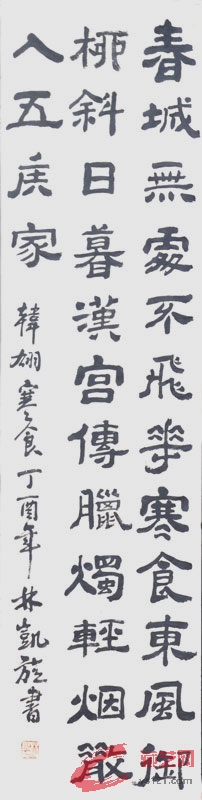 春城無處不飛華寒食東風御
柳斜日暮漢宮傳臘燭輕烟散
入五侯家
韓翃寒食丁酉年林凱旋書